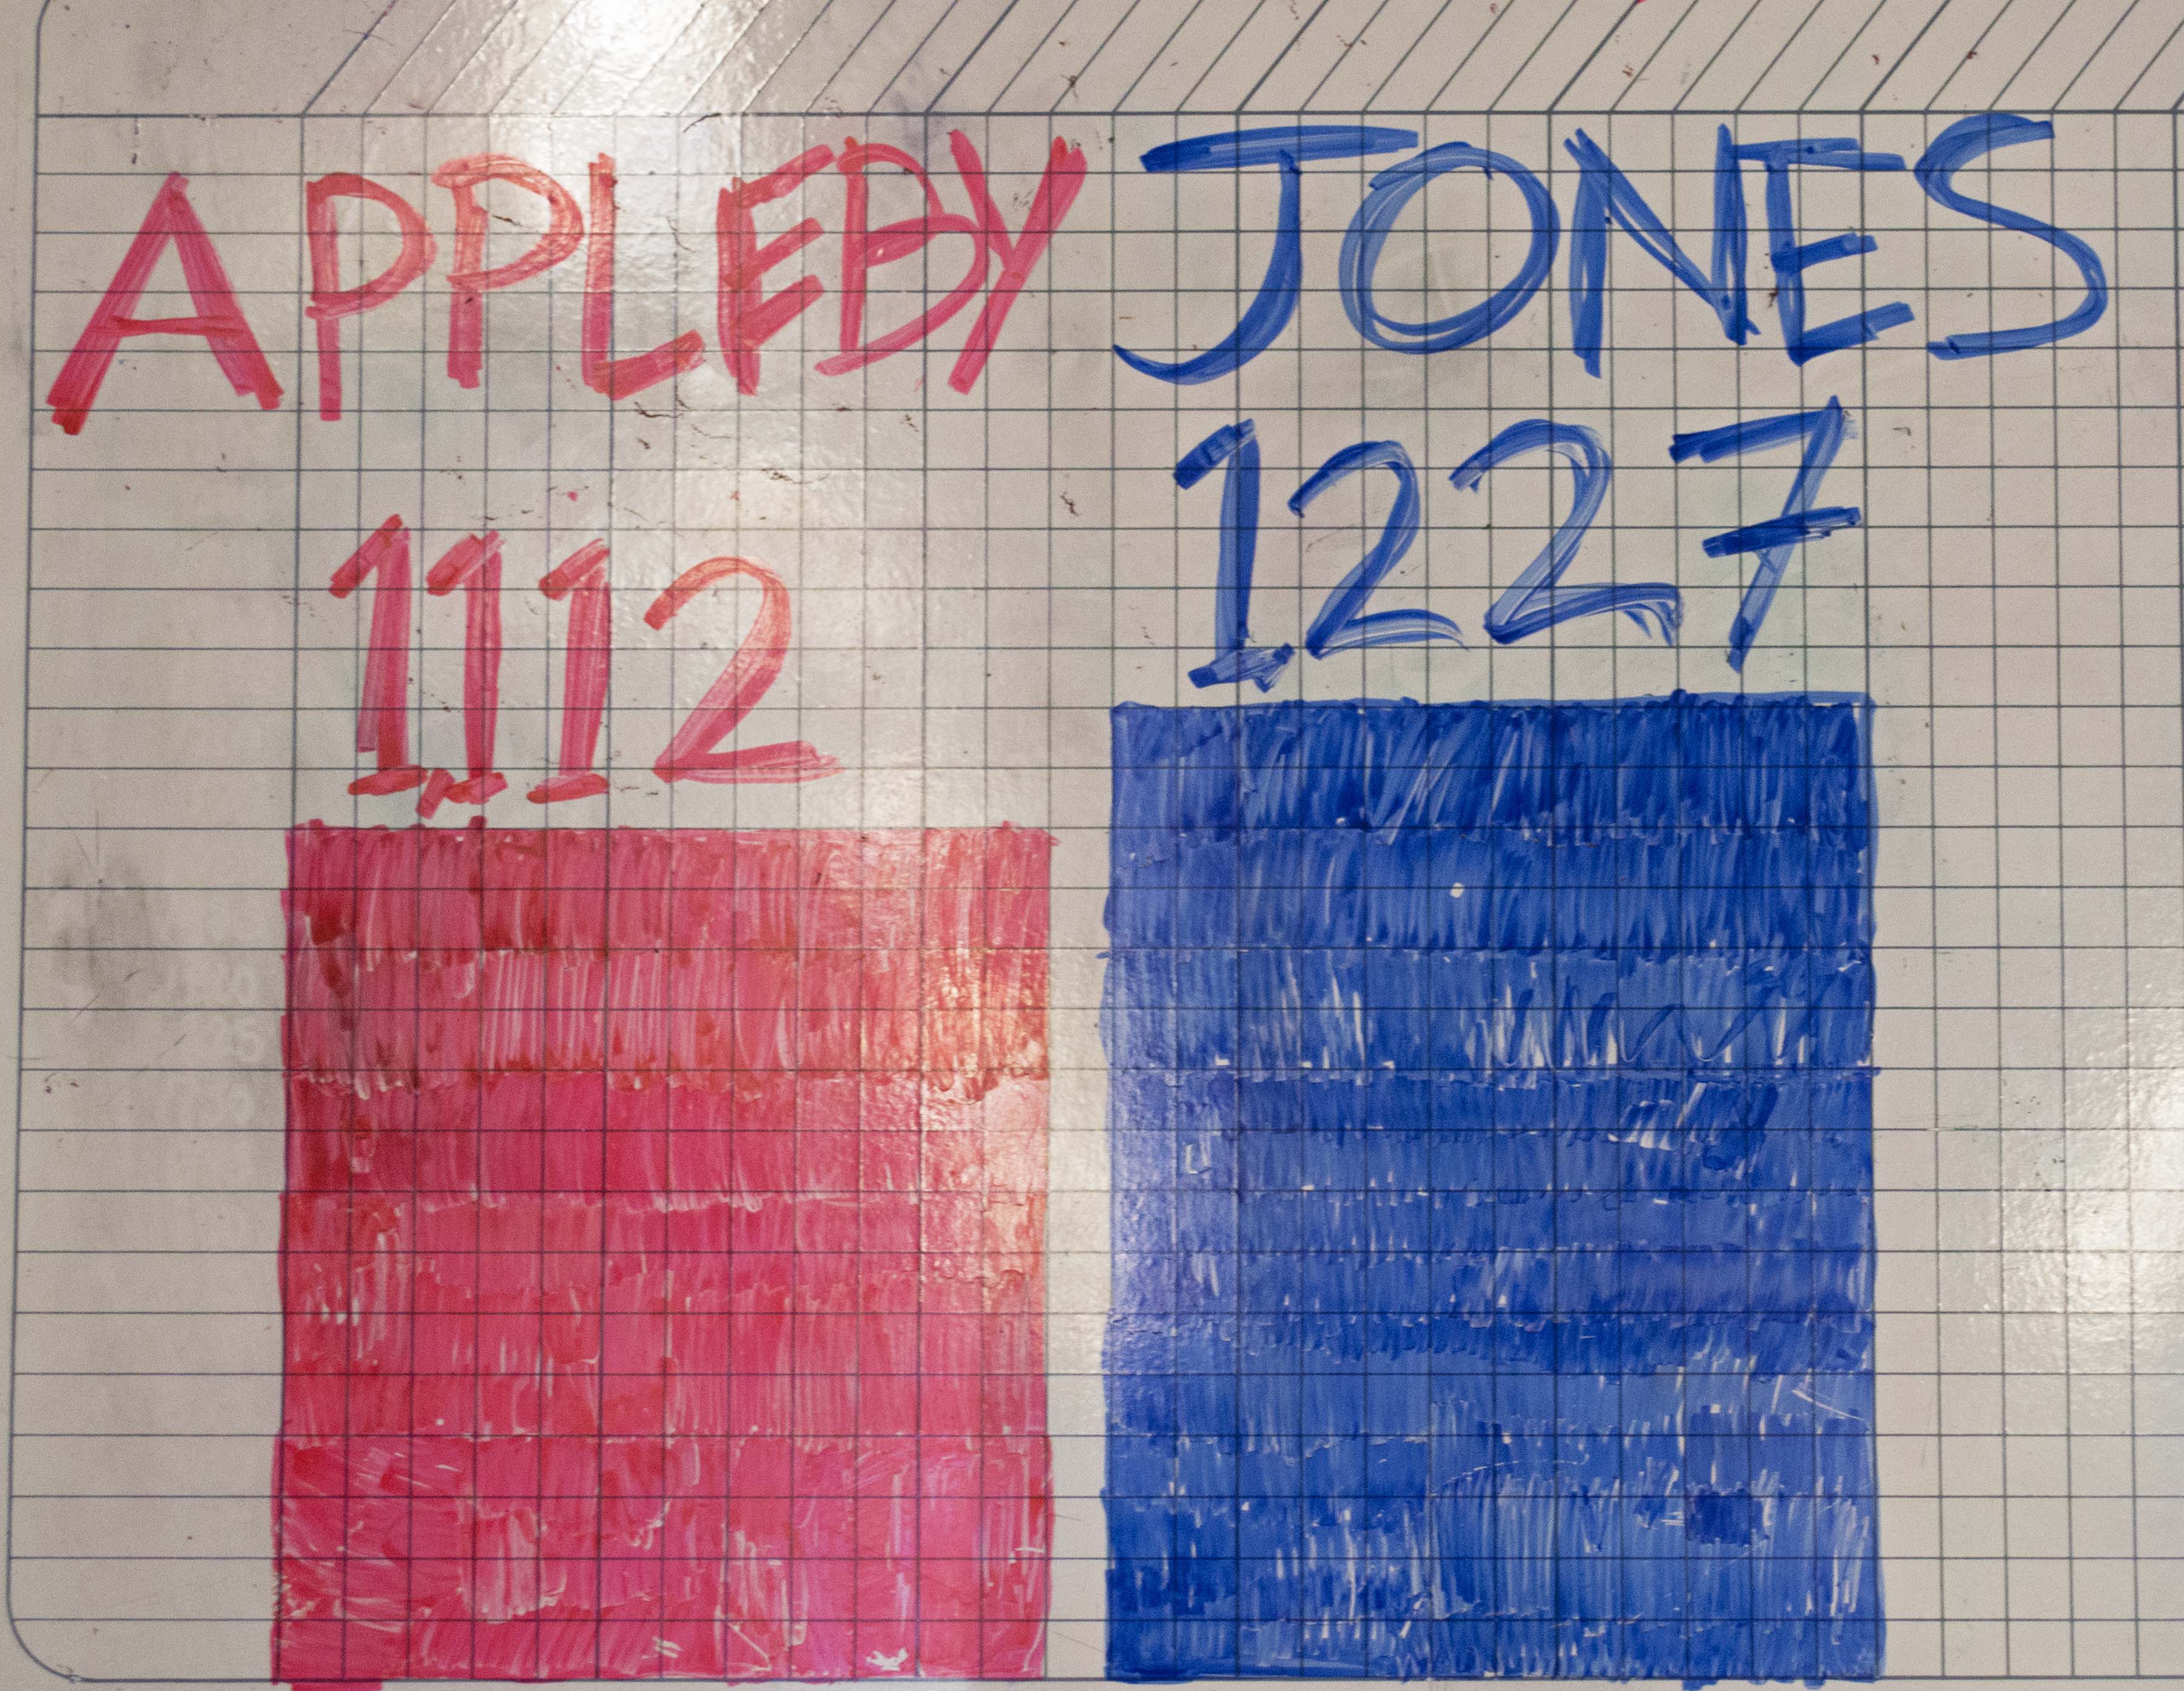 APPLEBY
1112
JONES
1227